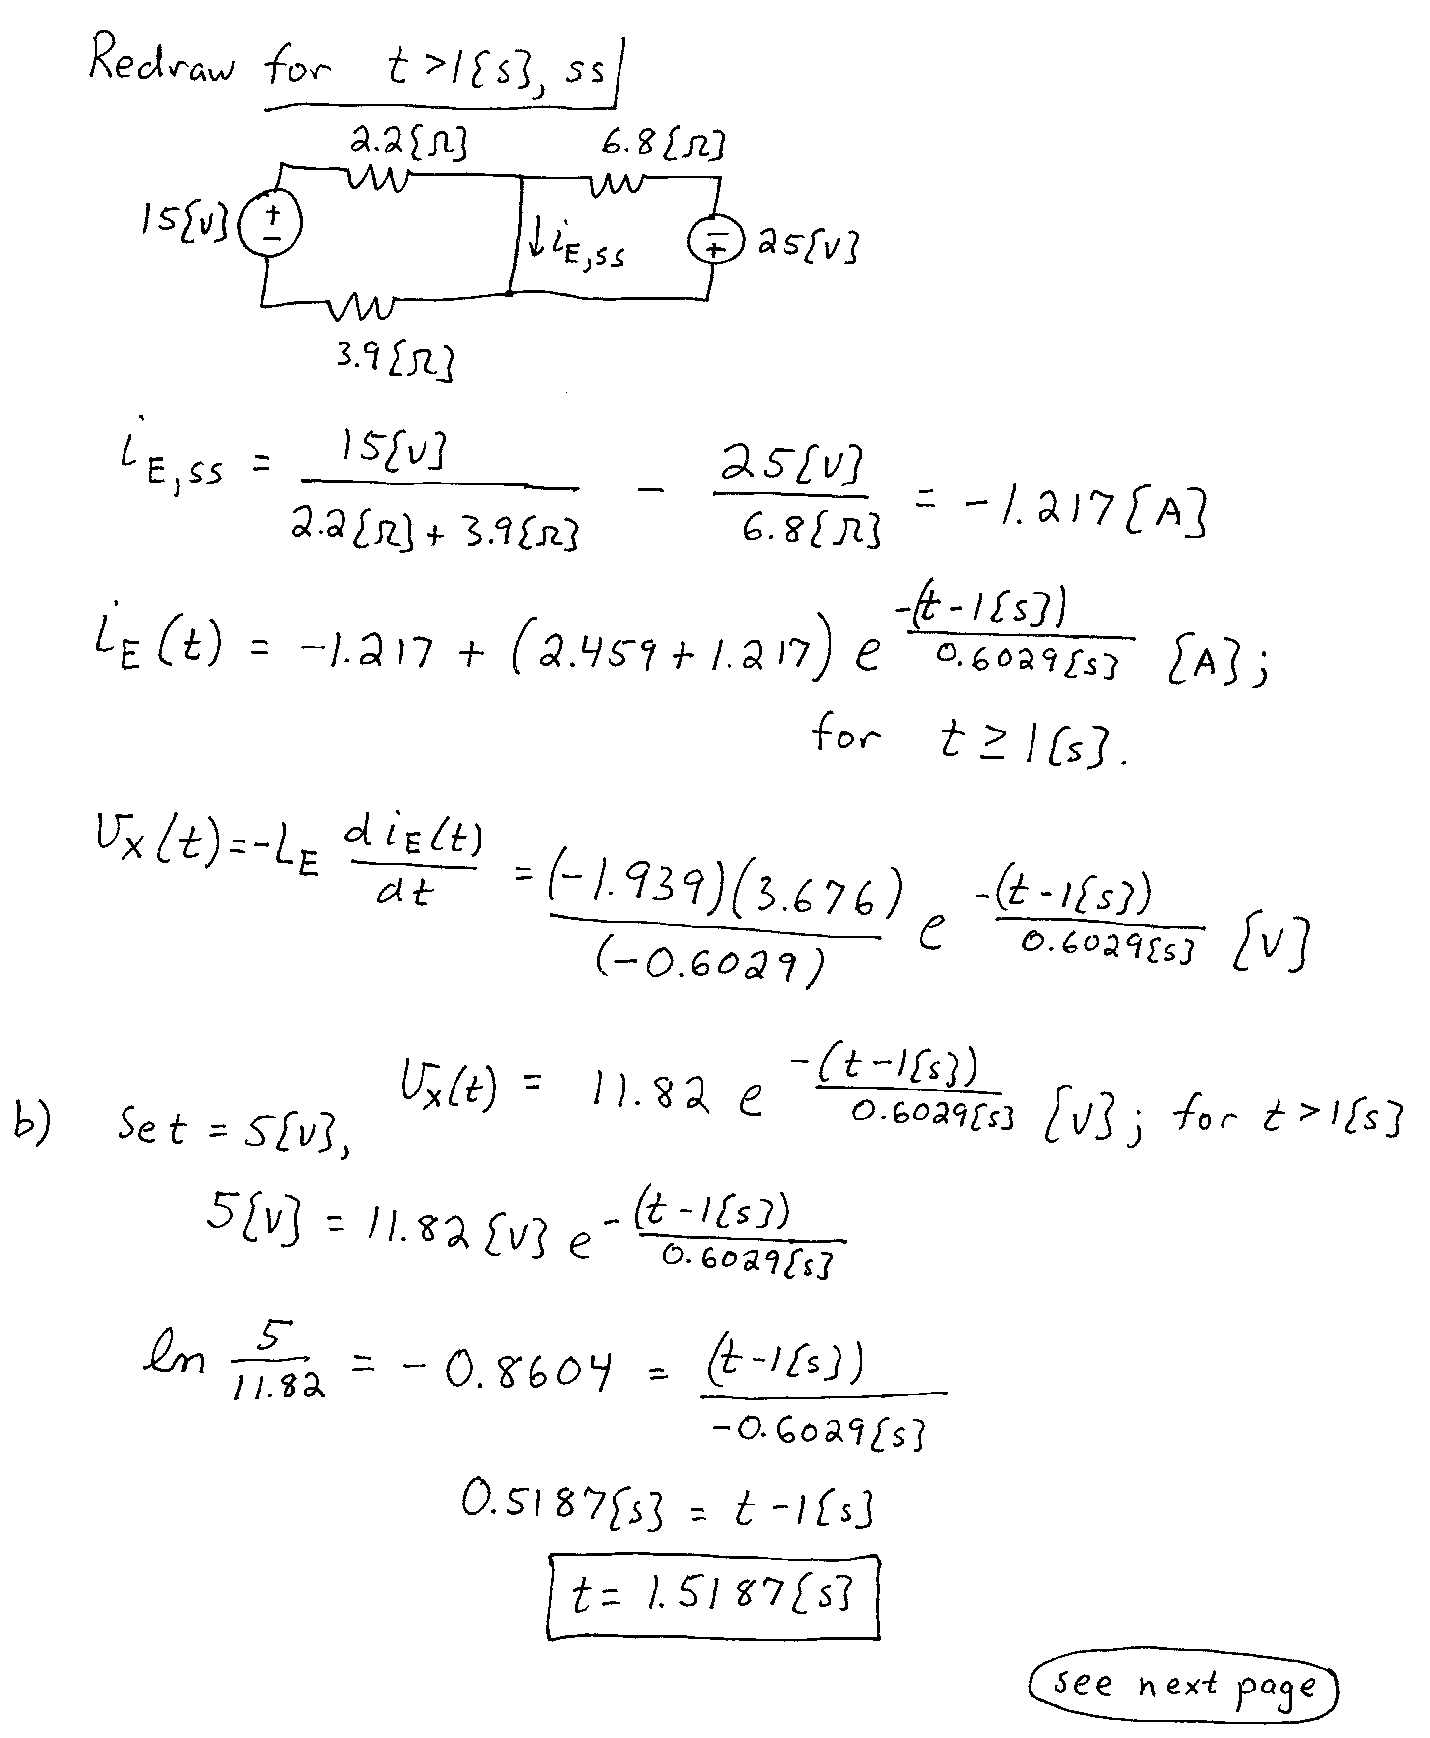 Redraw for t >1{s}, ss
2.2{Ω} 6.8{Ω}
15{v} + − ↓ iE,ss − + 25{v}
3.9{Ω}
iE,ss = 15{v} / (2.2{Ω} + 3.9{Ω}) − 25{v} / 6.8{Ω} = −1.217{A}
iE(t) = −1.217 + (2.459 + 1.217) e^(−(t−1{s}) / 0.6029{s}) {A};
for t ≥ 1{s}.
vx(t) = −LE diE(t)/dt = (−1.939)(3.676) / (−0.6029) e^(−(t−1{s}) / 0.6029{s}) {v}
vx(t) = 11.82 e^(−(t−1{s}) / 0.6029{s}) {v}; for t >1{s}
b) Set = 5{v},
5{v} = 11.82 {v} e^(−(t−1{s}) / 0.6029{s})
ln 5/11.82 = −0.8604 = (t−1{s}) / −0.6029{s}
0.5187{s} = t −1{s}
t = 1.5187{s}
see next page